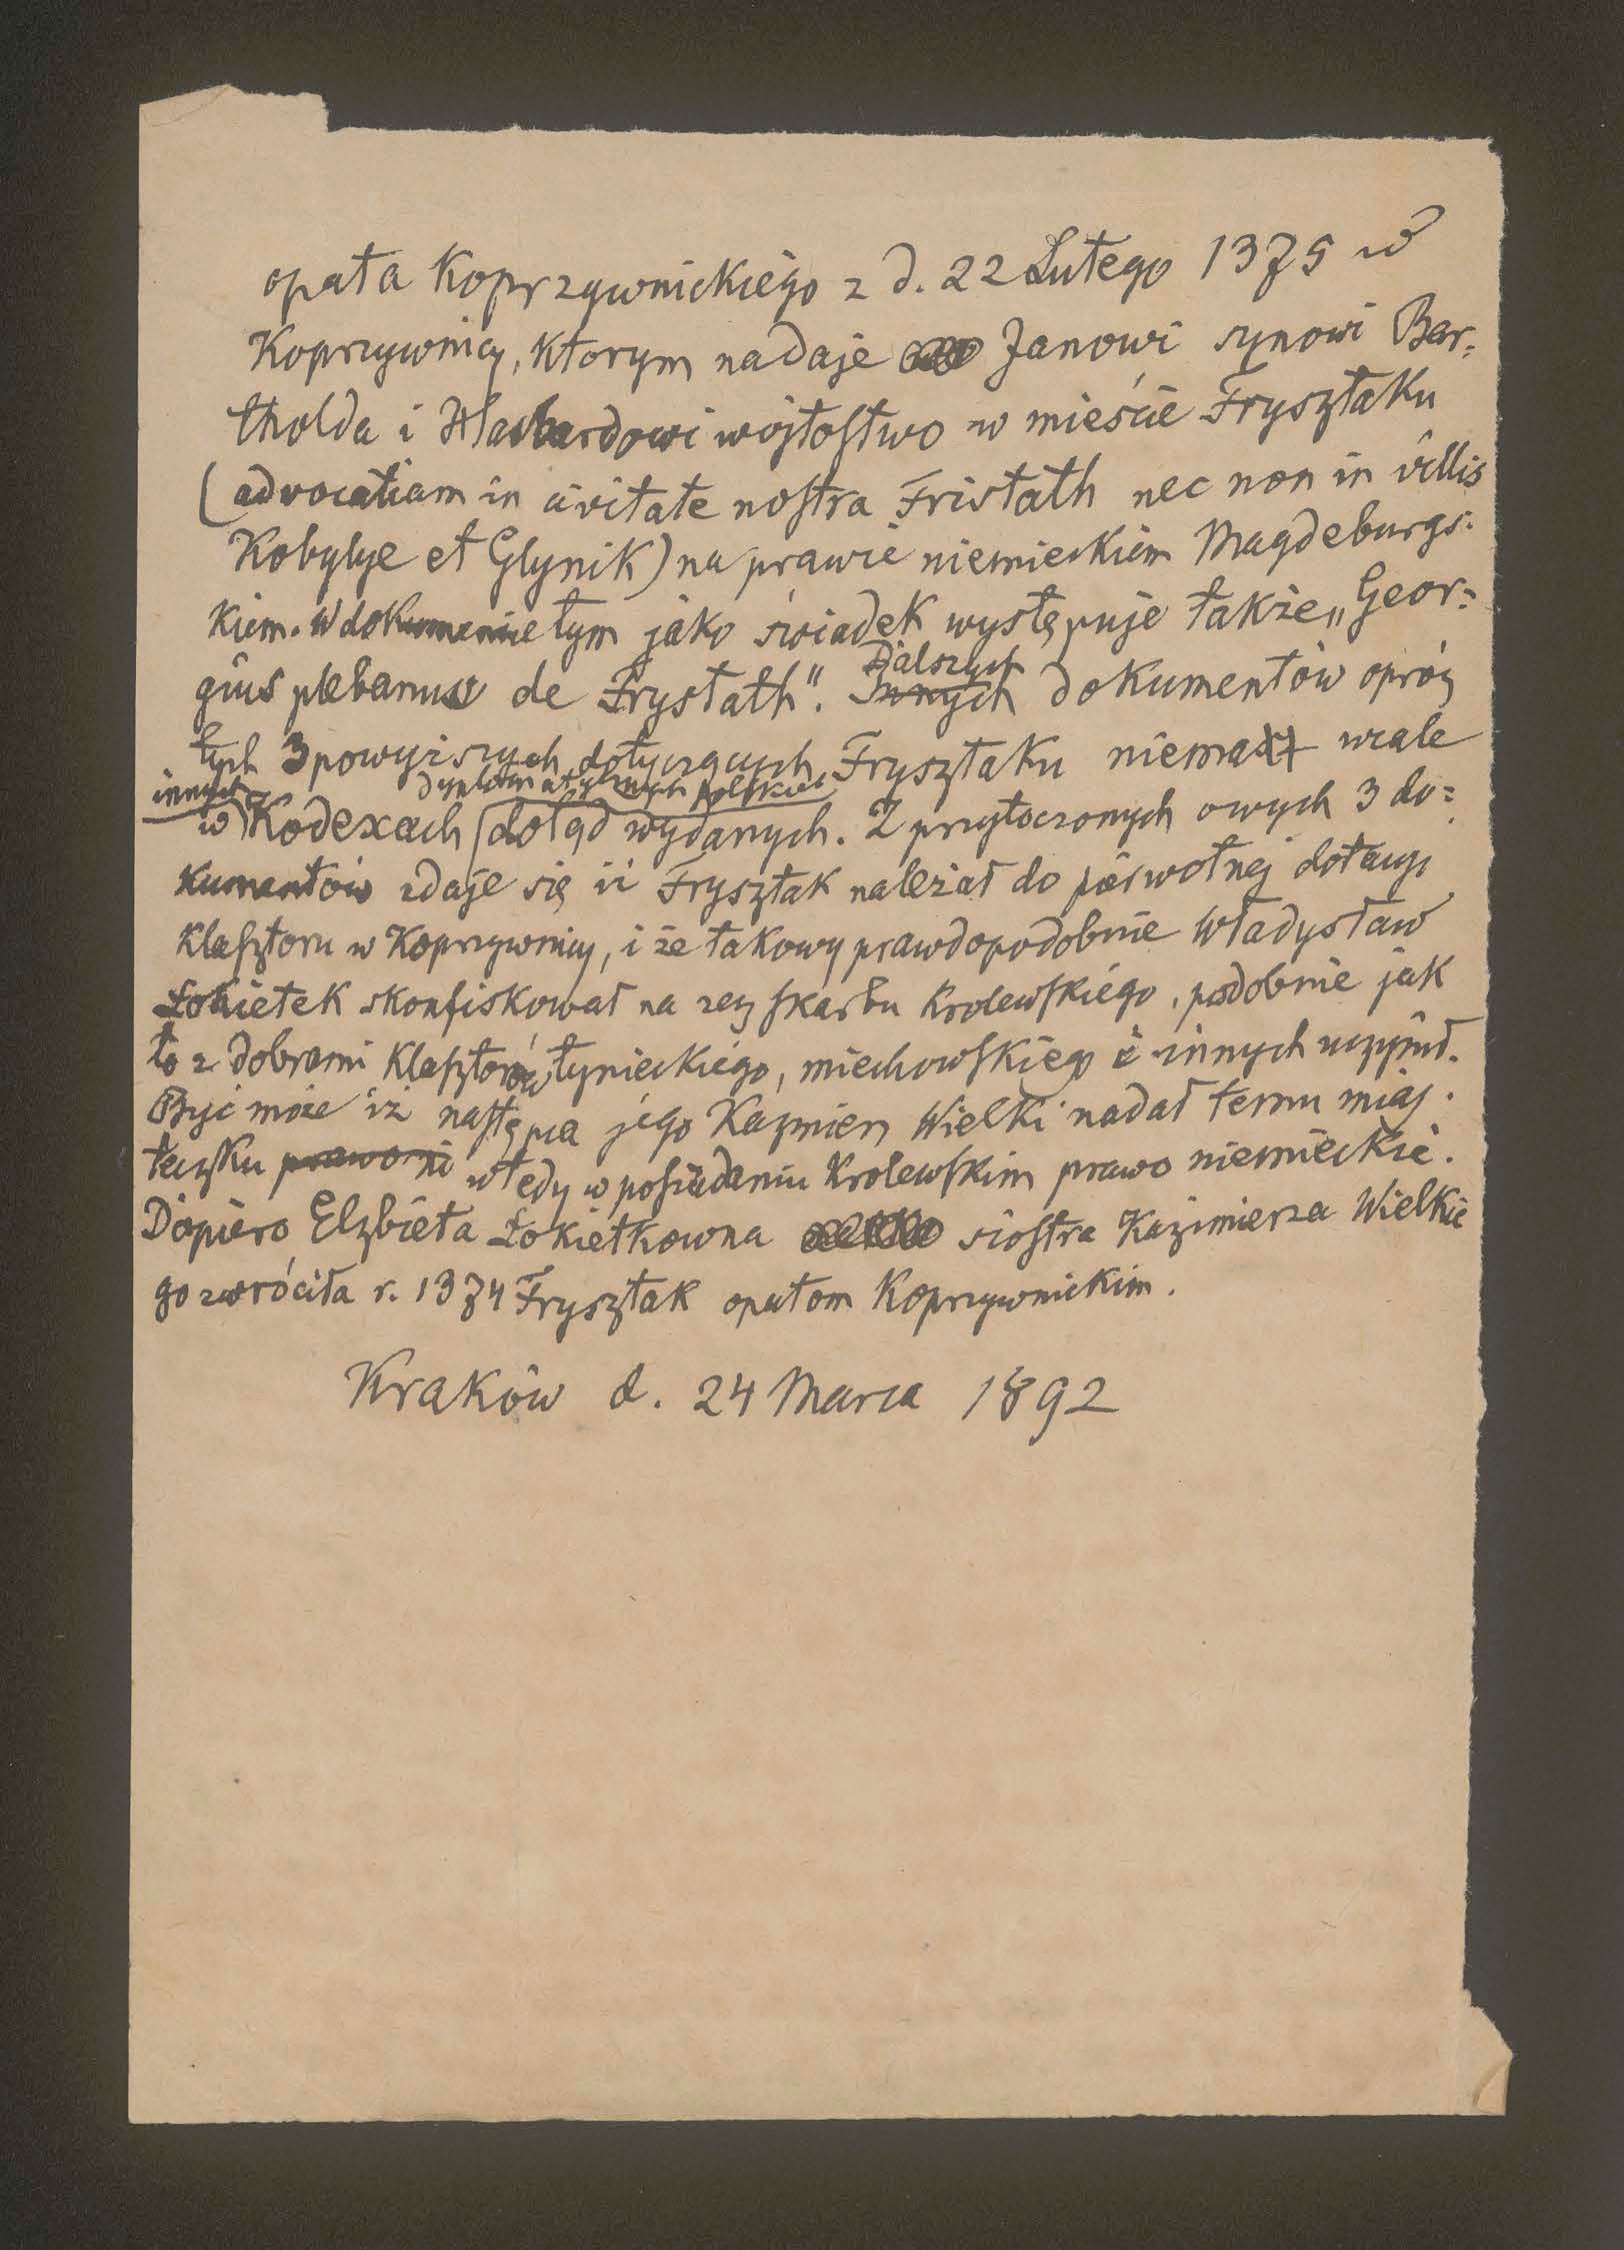 opata Koprzywnickiégo z d. 22 Lutego 1375 w
Koprzywnicy, ktorym nadaje Janowi synowi Bar=
tholda i wojtostwo w mieście Frysztaku
(advocatiam in civitate nostra Fristath nec non in villis
Kobylye et Glynik) na prawie niemieckiem Magdeburgs=
kiem. W dokumencie tym jako świadek występuje także „Geor=
gius plebanus de Frystath". Dalszych dokumentów opróz
tych 3 powyższych dotyczących Frysztaku niema wcale
w innych Kodexach dyplomatycznych polskich dotąd wydanych. Z przytoczonych owych 3 do=
kumentów zdaje się iż Frysztak należał do pierwotnej dotacyi
klasztoru w Koprzywnicy, i że takowy prawdopodobnie Władysław
Łokietek skonfiskował na rzecz skarbu Krolewskiégo, podobnie jak
to z dobrami klasztorów tynieckiégo, miechowskiego i innych uczynił.
Być może iż następca jego Kazmierz Wielki nadał temu mias=
teczku wtedy w posiadaniu Krolewskim prawo niemieckie.
Dopiero Elzbieta Łokietkowna siostra Kazimierza Wielkie
go zwróciła r. 1374 Frysztak opatom Koprzywnickim.
Kraków d. 24 Marca 1892